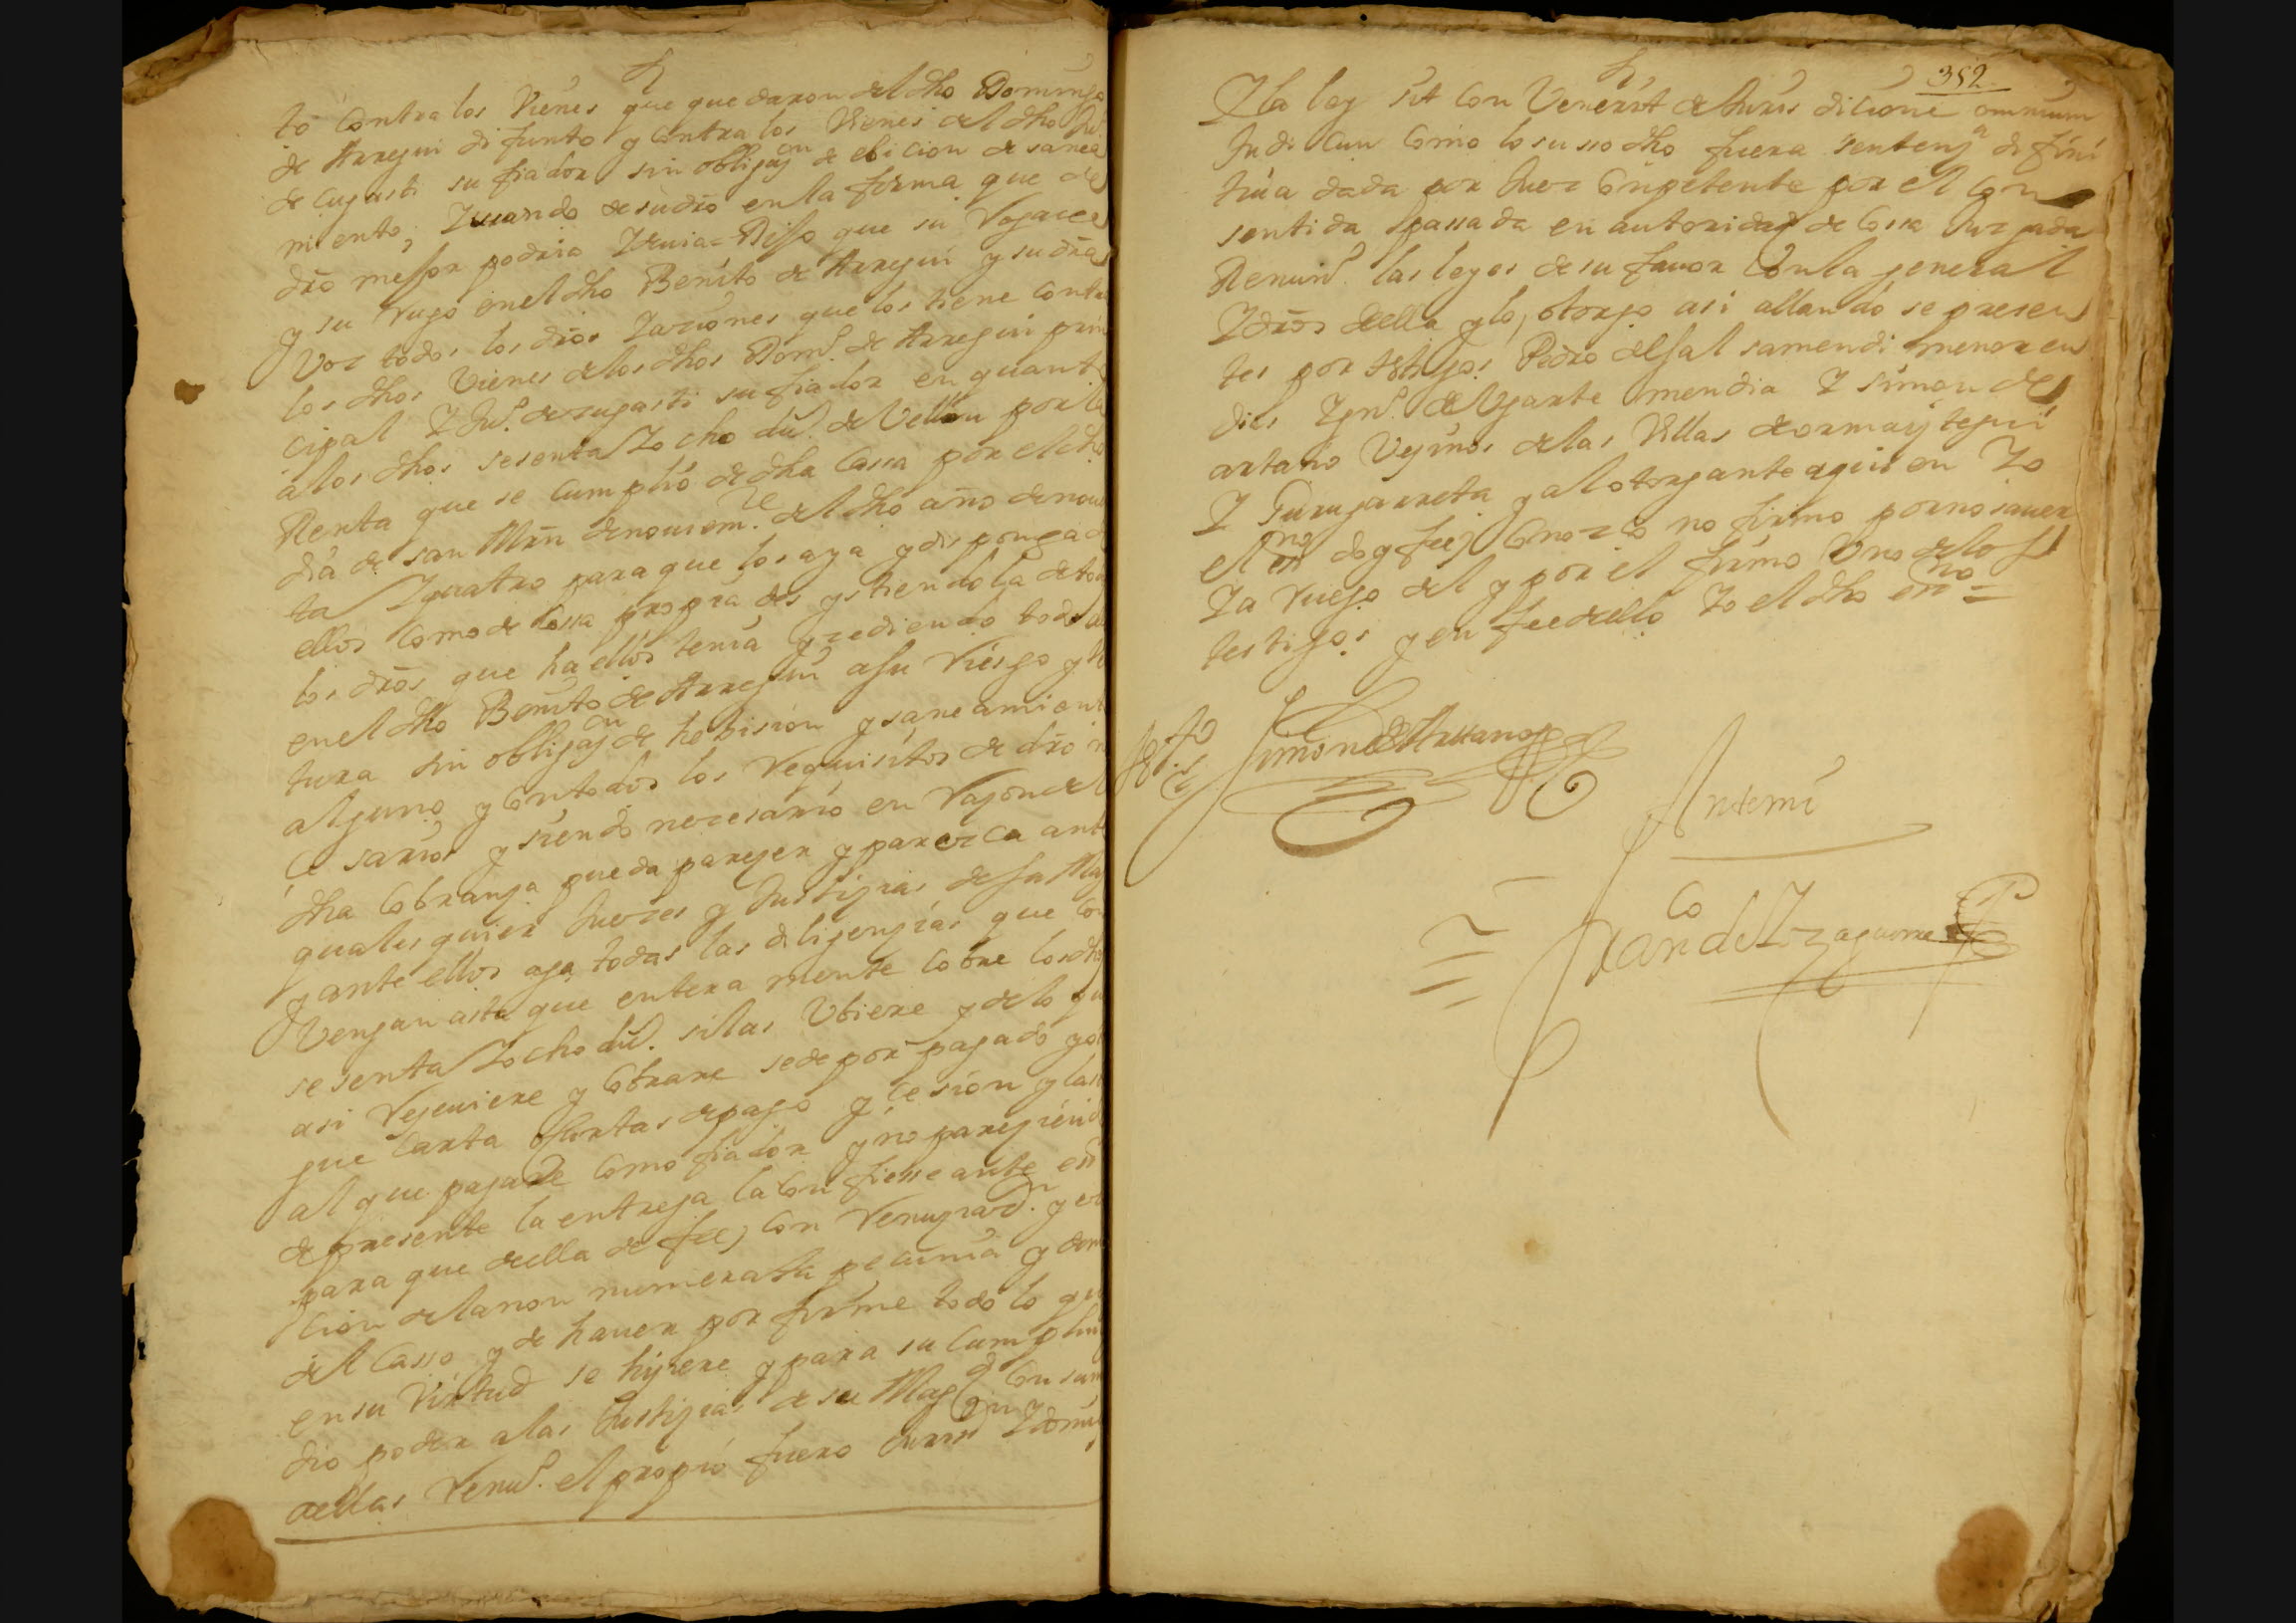 to contra los Vienes que quedaron del dho Domingo
de Arregui difunto y contra los Vienes del dho Ju.
de cugasti su fiador sin obligaçon de ebicion de sanea
miento, Yussando de su dro en la forma que de
dro mejor podria Y deuia = Dijo que su Voz açe
y su rugo en el dho Benito de Arregui y su dra
Voz todos los dros Y acciones que los tiene contra
los dhos Vienes de los dhos Dom.o de Arregui prin
cipal Y Ju.o de zugasti su fiador en quanti
a los dhos sesenta Y ocho du.s de Vellon por la
Renta que se cumplió de dha Cassa por el dho
dia de san Mrn de nouiem.re del dho año de nouen
ta Y quatro para que los aya y disponga de
ellos como de cossa propia des ystiendola de to
los dros que ha ellos tenia y zediendo todo
en el dho Benito de Arregui a su riesgo y
tura sin obligaçon de hebision y saneamiento
alguno y con todos los requisitos de dro ne
çesarios y siendo nezesario en raçon de
dha cobrança pueda pareçer y parezca ante
quales quier Juezes y Justiçias de su Mag
y ante ellos aga todas las diligençias que con
Vengan asta que entera mente cobre los dhos
sesenta Y ocho du.s silas Vbiere y de lo que
asi reçeuiere y cobrare se de por pagado y ot
gue carta o cartas de pago y çesion y las
al que pagare como fiador y no pareçiendo
de presente la entrega la confiesse ante essno
para que della de fee, con renunçiaçon y ex
cion de la non numerata pecunia y dem
del casso y de hauer por firme todo lo que
en su Virtud se hiçiere y para su cumplim
dio poder a las Justiçias de su Magd con sum
dellas renuço el propio fuero Jurison Y domi
352
Y la ley sit con Venerit de Juris dicione omnium
Judicun como lo susso dho fuera sentença difini
tiua dada por Juez Conpetente por el con
sentida Y passada en autoridad de cossa Juzgada
Renunço las leyes de su fauor Con la general
Y dros della y lo otorgo asi allandose presen
tes por testigos Pedro de Jalsamendi menor en
dias Ygno de Vgarte mendia Y simon de
artano Veçinos de las Villas de ormaiztegui
Y Gurugarreta y al otorgante aquien Yo
el essno doy fee conozco no firmo por no sauer
Y a ruego del y por el firmo Vno de los
testigos y en fee dello Yo el dho essno =
Simon de Artano
Antemi
Franco de Yzaguirre